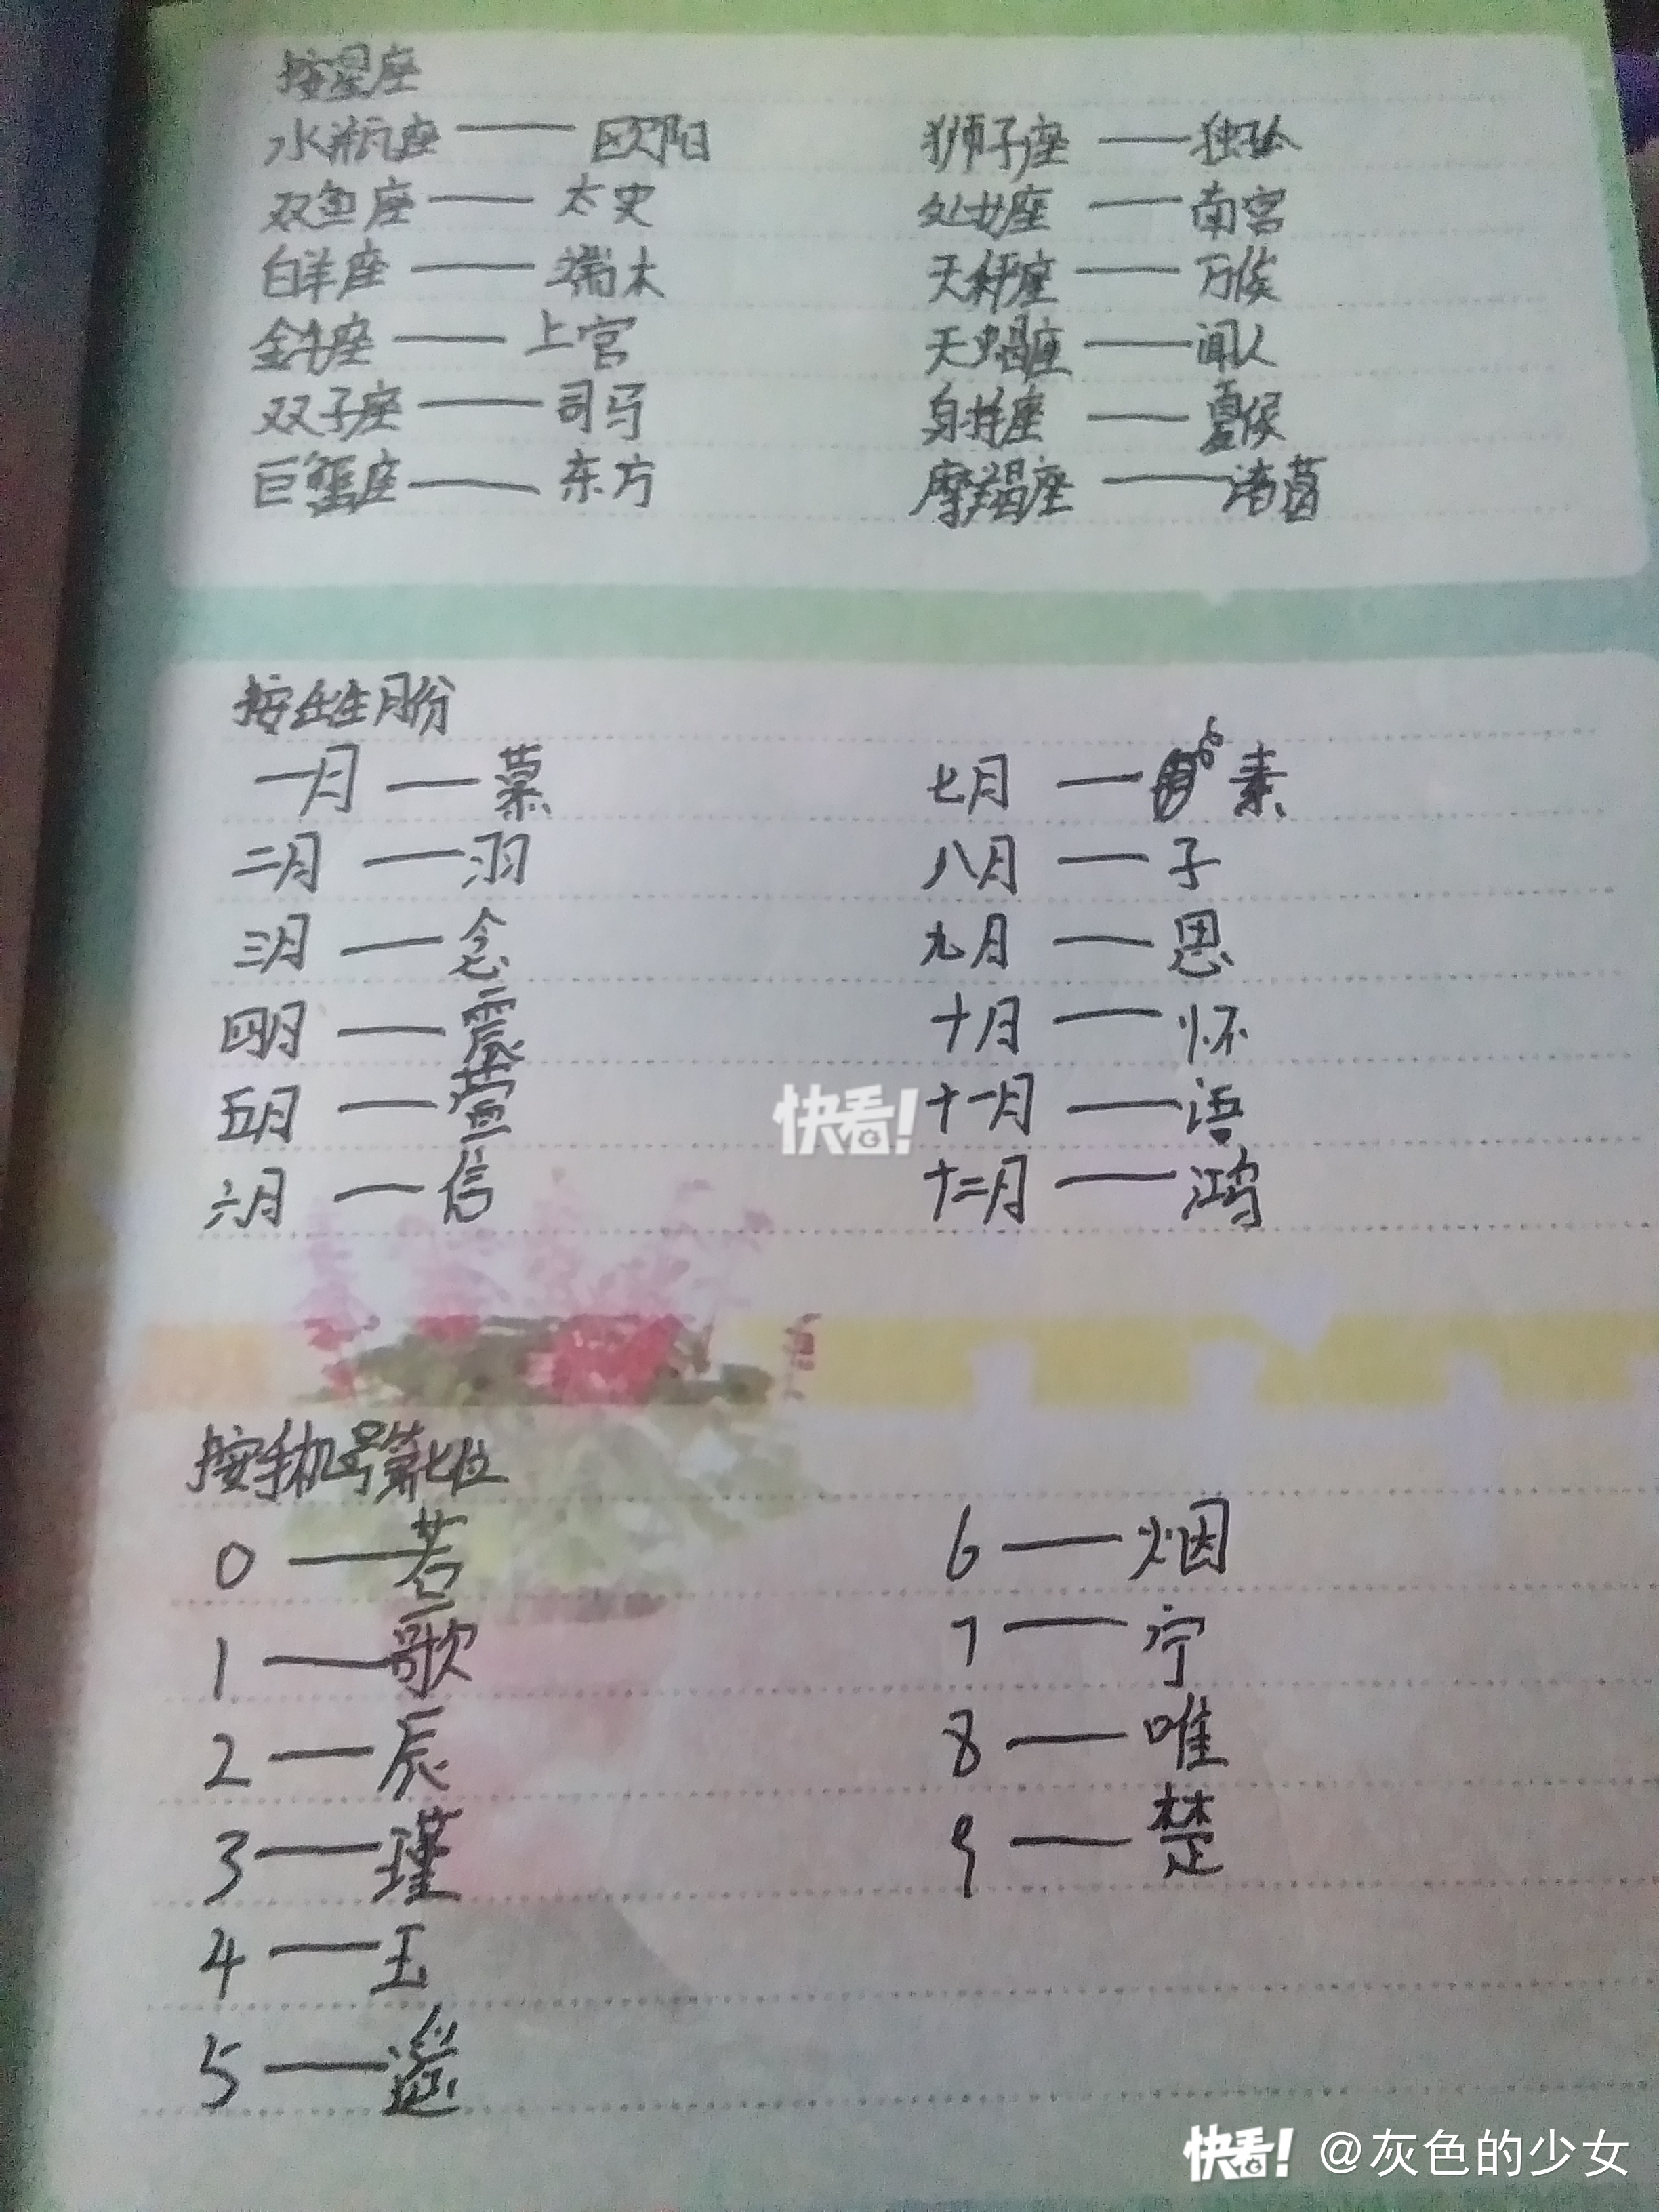 按星座
水瓶座——欧阳
双鱼座——太史
白羊座——端木
金牛座——上官
双子座——司马
巨蟹座——东方
狮子座——独孤
处女座——南宫
天秤座——万俟
天蝎座——闻人
射手座——夏侯
摩羯座——诸葛
按出生月份
一月——慕
二月——羽
三月——念
四月——震
五月——萱
六月——信
七月——素
八月——子
九月——思
十月——怀
十一月——语
十二月——鸿
快看!
按手机号第七位
0——若
1——歌
2——辰
3——瑾
4——玉
5——遥
6——烟
7——宁
8——唯
9——楚
快看! @灰色的少女